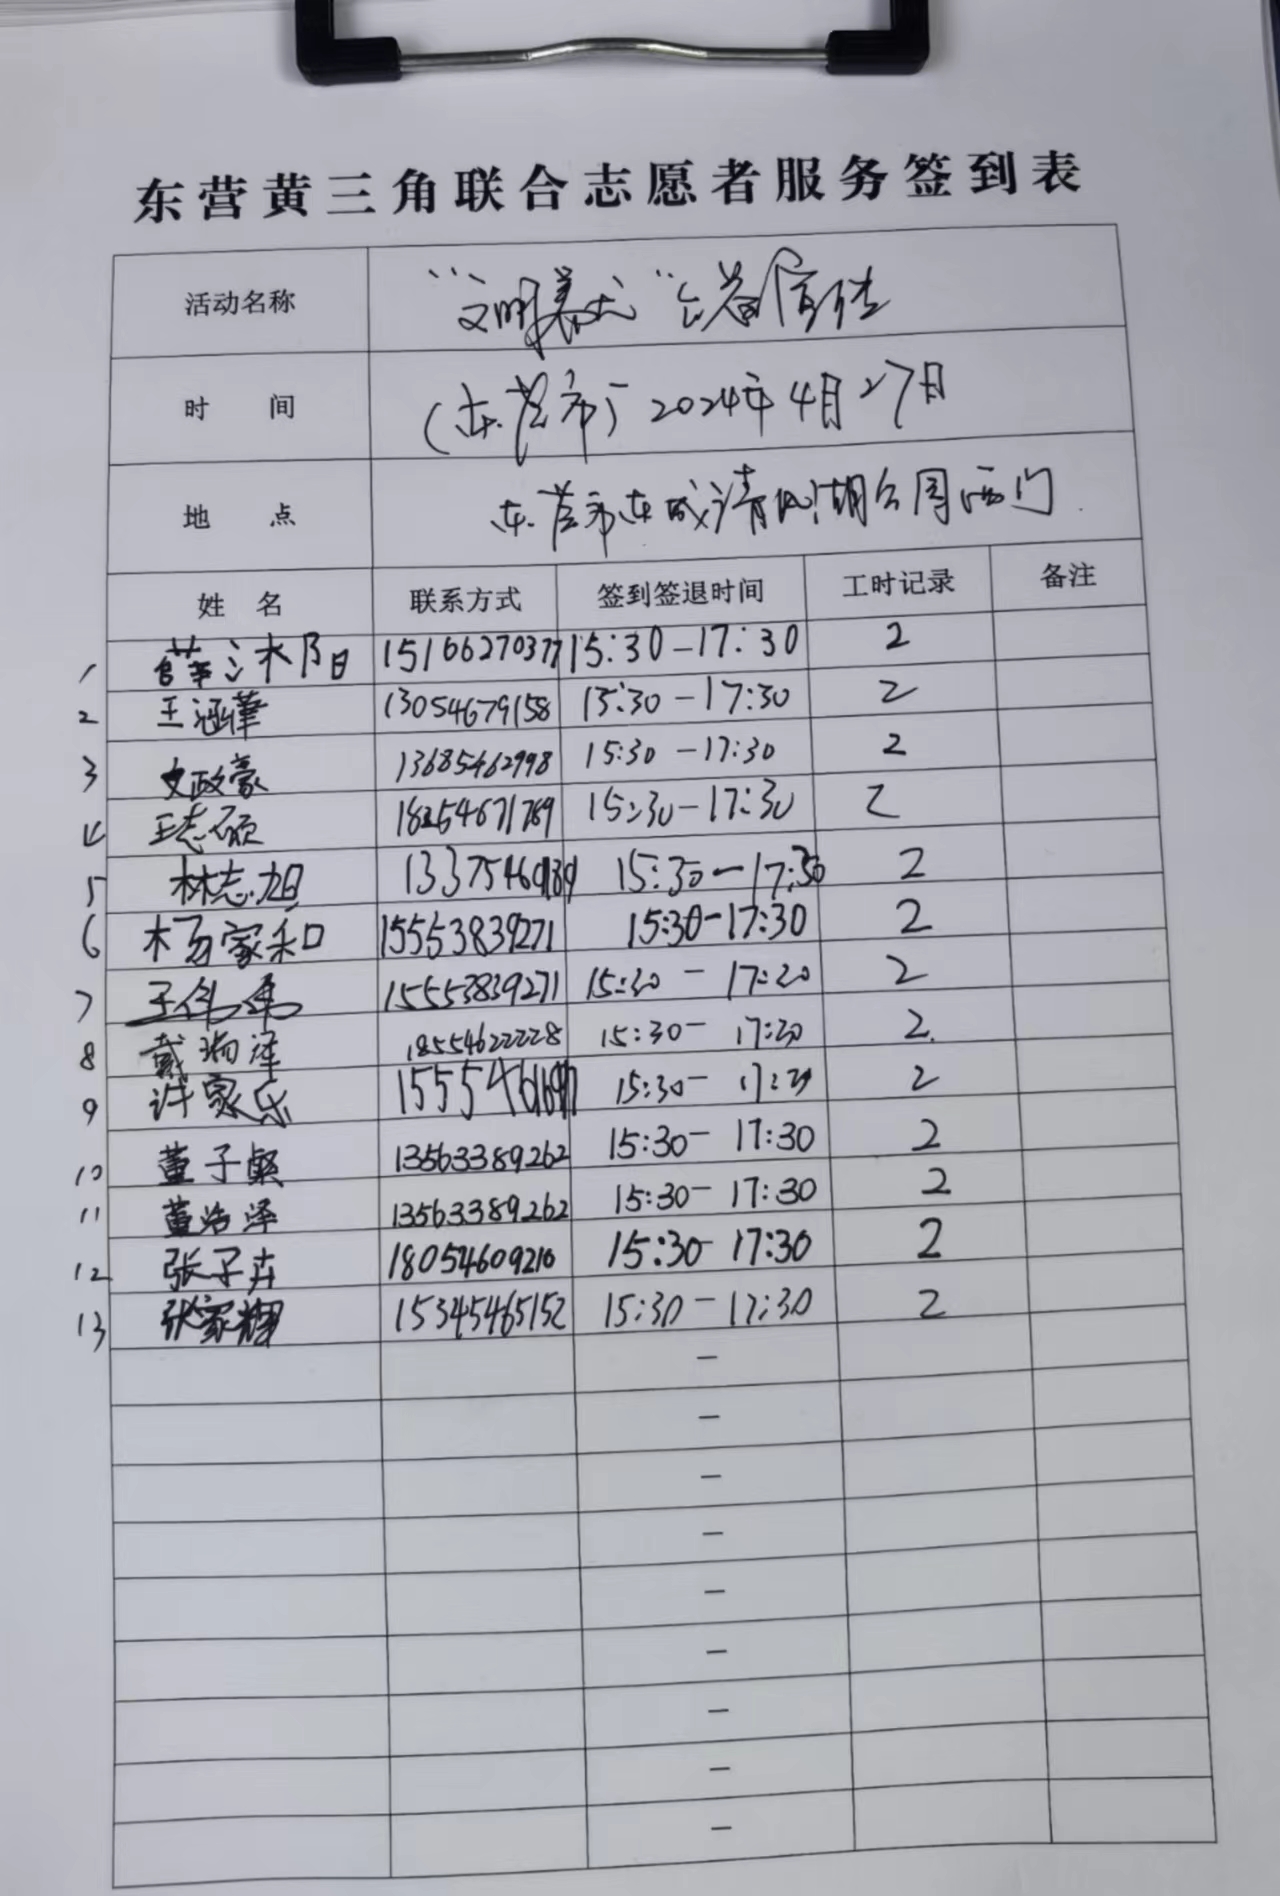 东营黄三角联合志愿者服务签到表
活动名称 “文明养犬“公益宣传
时 间 (东营市) 2024年4月27日
地 点 东营市东城清风湖公园西门
姓 名 联系方式 签到签退时间 工时记录 备注
1 薛沐阳 15166270377 15:30-17:30 2
2 王涵葦 13054679158 15:30-17:30 2
3 文政豪 13685462998 15:30-17:30 2
4 王志硕 18254671789 15:30-17:30 2
5 林志旭 15:30-17:30 2
6 杨家和 15553839271 15:30-17:30 2
7 王伟 15553839271 15:30-17:30 2
8 戴瑞泽 18554622228 15:30-17:30 2
9 许家乐 15:30-17:30 2
10 董子燊 13563389262 15:30-17:30 2
11 董浩泽 13563389262 15:30-17:30 2
12 张子卉 18054609210 15:30-17:30 2
13 张家辉 15345465152 15:30-17:30 2
-
-
-
-
-
-
-
-
-